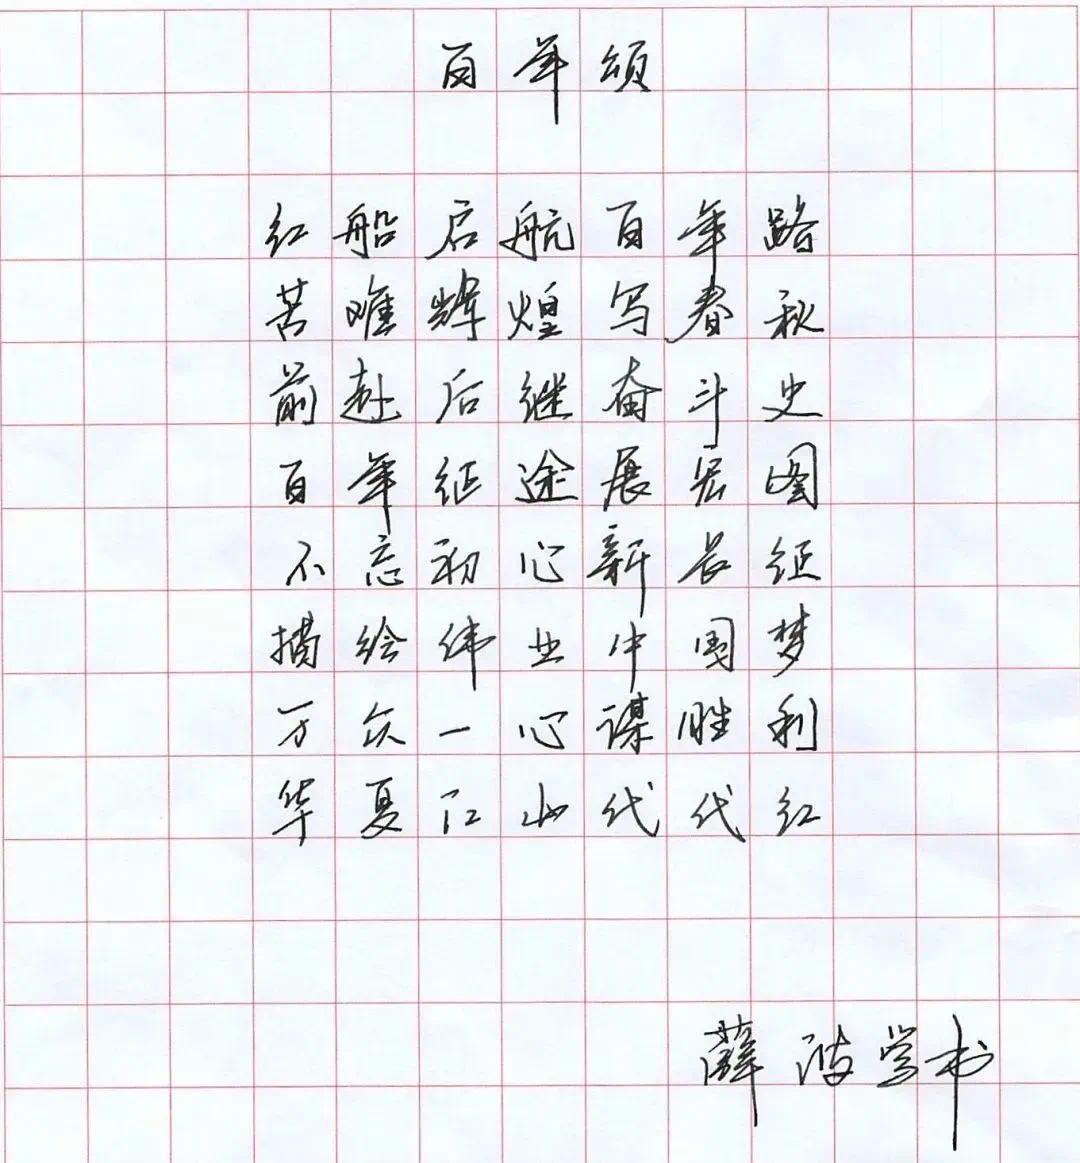 百年颂
红船启航百年路
苦难辉煌写春秋
前赴后继奋斗史
百年征途展宏图
不忘初心新长征
描绘伟业中国梦
万众一心谋胜利
华夏江山代代红
薛波学书